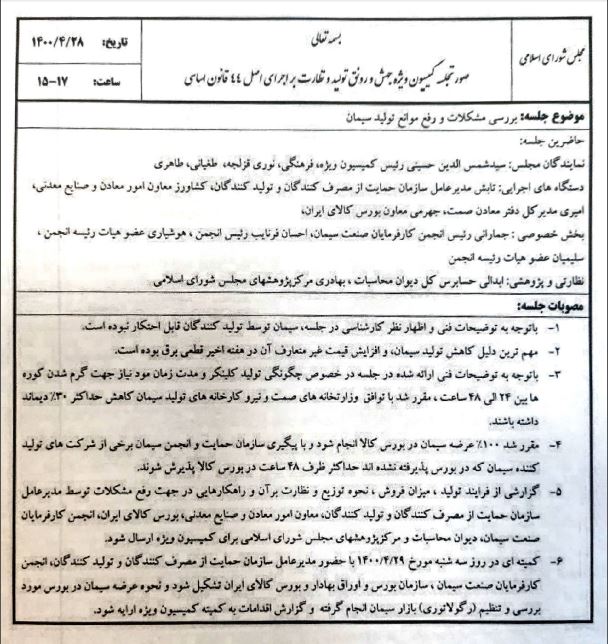 بسمه تعالی
مجلس شورای اسلامی
صورتجلسه کمیسیون ویژه جهش و رونق تولید و نظارت بر اجرای اصل ۴۴ قانون اساسی
تاریخ: ۱۴۰۰/۴/۲۸
ساعت: ۱۷-۱۵
موضوع جلسه: بررسی مشکلات و رفع موانع تولید سیمان
حاضرین جلسه:
نمایندگان مجلس: سیدشمس الدین حسینی رئیس کمیسیون ویژه، فرهنگی، نوری قزلجه، طغیانی، طاهری
دستگاه های اجرایی: تابش مدیرعامل سازمان حمایت از مصرف کنندگان و تولید کنندگان، کشاورز معاون امور معادن و صنایع معدنی،
امیری مدیرکل دفتر معادن صمت، جهرمی معاون بورس کالای ایران،
بخش خصوصی : جمارانی رئیس انجمن کارفرمایان صنعت سیمان، احسان فرنایب رئیس انجمن ، هوشیاری عضو هیات رئیسه انجمن ،
سلیمیان عضو هیات رئیسه انجمن
نظارتی و پژوهشی: ابدالی حسابرس کل دیوان محاسبات ، بهادری مرکزپژوهشهای مجلس شورای اسلامی
مصوبات جلسه:
۱- باتوجه به توضیحات فنی و اظهار نظر کارشناسی در جلسه، سیمان توسط تولید کنندگان قابل احتکار نبوده است.
۲- مهم ترین دلیل کاهش تولید سیمان، و افزایش قیمت غیر متعارف آن در هفته اخیر قطعی برق بوده است.
۳- باتوجه به توضیحات فنی ارائه شده در جلسه در خصوص چگونگی تولید کلینکر و مدت زمان مود نیاز جهت گرم شدن کوره
ها بین ۲۴ الی ۴۸ ساعت ، مقرر شد با توافق وزارتخانه های صمت و نیرو کارخانه های تولید سیمان کاهش حداکثر ۳۰٪ دیماند
داشته باشند.
۴- مقرر شد ۱۰۰٪ عرضه سیمان در بورس کالا انجام شود و با پیگیری سازمان حمایت و انجمن سیمان برخی از شرکت های تولید
کننده سیمان که در بورس پذیرفته نشده اند حداکثر ظرف ۴۸ ساعت در بورس کالا پذیرش شوند.
۵- گزارشی از فرایند تولید ، میزان فروش ، نحوه توزیع و نظارت برآن و راهکارهایی در جهت رفع مشکلات توسط مدیرعامل
سازمان حمایت از مصرف کنندگان و تولید کنندگان، معاون امور معادن و صنایع معدنی، بورس کالای ایران، انجمن کارفرمایان
صنعت سیمان، دیوان محاسبات و مرکزپژوهشهای مجلس شورای اسلامی برای کمیسیون ویژه ارسال شود.
۶- کمیته ای در روز سه شنبه مورخ ۱۴۰۰/۴/۲۹ با حضور مدیرعامل سازمان حمایت از مصرف کنندگان و تولید کنندگان، انجمن
کارفرمایان صنعت سیمان ، سازمان بورس و اوراق بهادار و بورس کالای ایران تشکیل شود و نحوه عرضه سیمان در بورس مورد
بررسی و تنظیم (رگولاتوری) بازار سیمان انجام گرفته و گزارش اقدامات به کمیته کمیسیون ویژه ارایه شود.